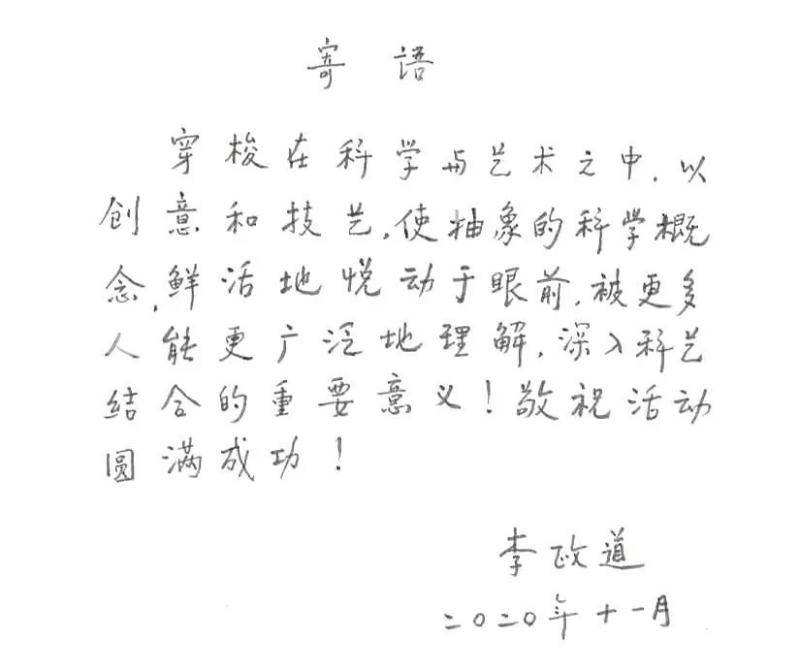 寄语
穿梭在科学与艺术之中,以
创意和技艺,使抽象的科学概
念,鲜活地悦动于眼前,被更多
人能更广泛地理解,深入科艺
结合的重要意义!敬祝活动
圆满成功!
李政道
二〇二〇年十一月